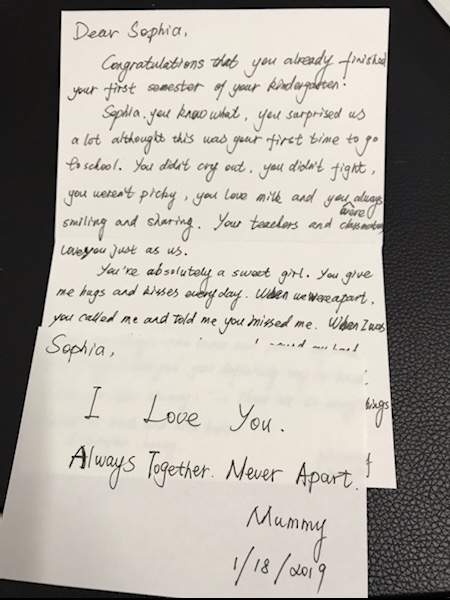 Dear Sophia,
Congratulations that you already finished
your first semester of your kindergarten.
Sophia, you know what, you surprised us
a lot althought this was your first time to go
to school. You didn't cry out, you didn't fight,
you weren't picky, you love milk and you always
were
smiling and sharing. Your teachers and classmates
love you just as us.
You're absolutely a sweet girl. You give
me hugs and kisses everyday. When we were apart,
you called me and told me you missed me. When I was
Sophia,
I Love You.
Always Together. Never Apart.
Mummy
1/18/2019